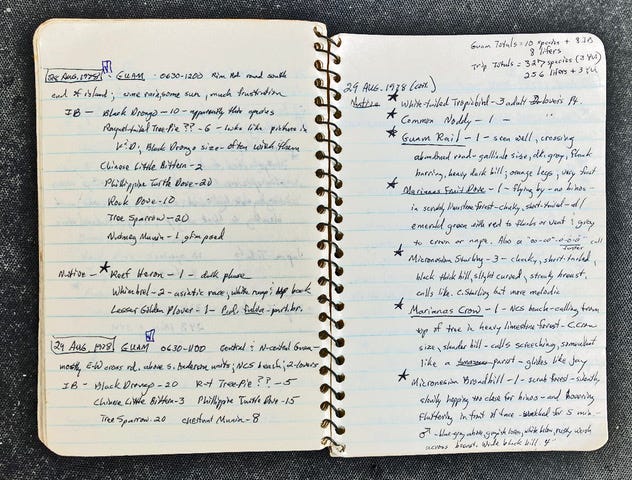 28 AUG. 1978 GUAM 0630-1200 Rim Rd. road south
end of island; some rain, some sun, much frustration
IB - Black Drongo - 10 - apparently this species
Racquet-tailed Tree-Pie ?? - 6 - looks like picture in
Black Drongo size - often with them
Chinese Little Bittern - 2
Phillippine Turtle Dove - 20
Rock Dove - 10
Tree Sparrow - 20
Nutmeg Munin - 1 glimpsed
Native - Reef Heron - 1 - dark phase
Whimbrel - 2 - asiatic race, white rump & back
Lesser Golden Plover - 1 -
29 AUG. 1978 GUAM 0630-1100 Central & N-central Guam -
mostly E-W cross rd. above S. Anderson units; NCS beach; 2-lovers
IB - Black Drongo - 20 R-t Tree-Pie ?? - 5
Chinese Little Bittern - 3 Phillippine Turtle Dove - 15
Tree Sparrow - 20 chestnut Munin - 8
Guam Totals = 10 species + 8 IB
8 lifers
Trip Totals = 327 species
256 lifers +
29 AUG. 1978 (cont.)
Native White-tailed Tropicbird - 3 adult 2-lovers Pt.
Common Noddy - 1 -
Guam Rail - 1 - seen well, crossing
abandoned road - gallinule size, dk. gray, flank
barring, heavy dark bill, orange legs, very fast
Mariannas Fruit Dove - 1 - flying by - no binos -
in scrubby limestone forest - chunky, short-tailed - all
emerald green with red to flanks or vent; grey
to crown or nape. Also a "oo-oo" -o-o-o-o call
faster
Micronesian Starling - 3 - chunky, short-tailed,
black thick bill, slight curved, streaky breast,
calls like C. Starling but more melodic
Mariannas Crow - 1 - NCS beach - calling from
top of tree in heavy limestone forest - C. crow
size, slender bill - calls screeching, somewhat
like a parrot - glides like jay
Micronesian Broadbill - 1 - scrub forest - silently,
slowly hopping too close for binos - and hovering
fluttering in front of face - watched for 5 min -
♂ - blue-gray above, grayish crown, white below, rusty wash
across breast. Wide black bill